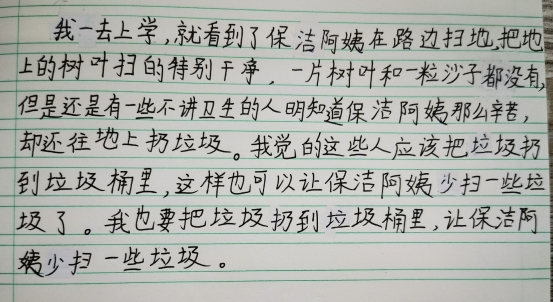 我一去上学,就看到了保洁阿姨在路边扫地,把地
上的树叶扫的特别干净,一片树叶和一粒沙子都没有,
但是还是有一些不讲卫生的人明知道保洁阿姨那么辛苦,
却还往地上扔垃圾。我觉的这些人应该把垃圾扔
到垃圾桶里,这样也可以让保洁阿姨少扫一些垃
圾了。我也要把垃圾扔到垃圾桶里,让保洁阿
姨少扫一些垃圾。